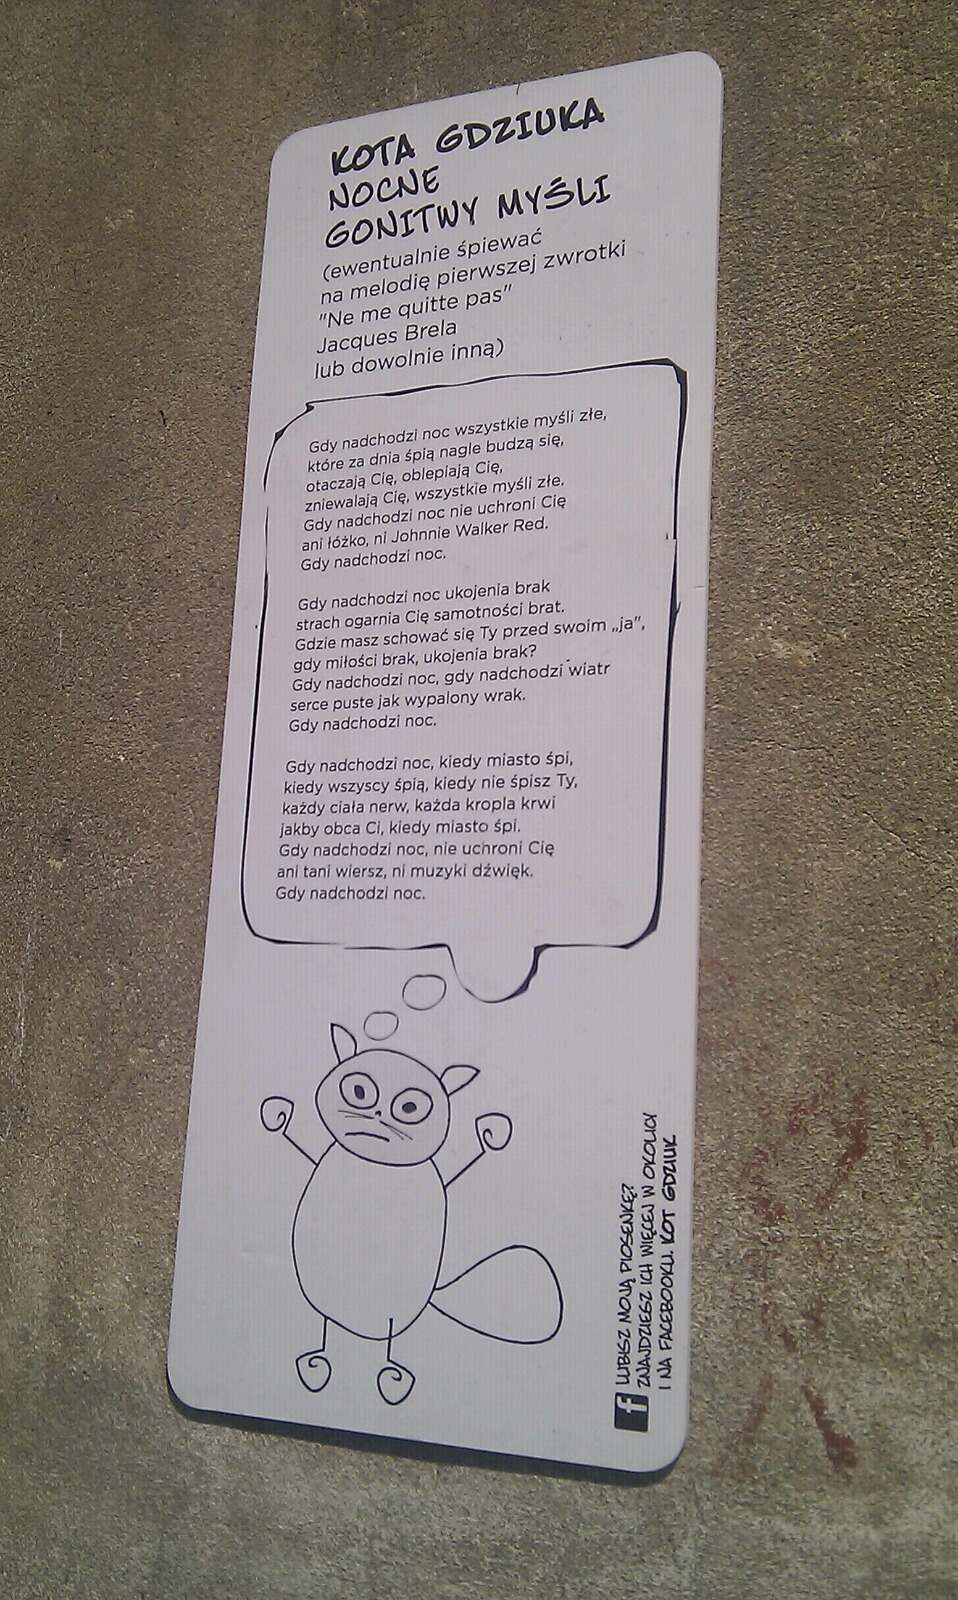 KOTA GDZIUKA
NOCNE
GONITWY MYŚLI
(ewentualnie śpiewać
na melodię pierwszej zwrotki
"Ne me quitte pas"
Jacques Brela
lub dowolnie inną)
Gdy nadchodzi noc wszystkie myśli złe,
które za dnia śpią nagle budzą się,
otaczają Cię, oblepiają Cię,
zniewalają Cię, wszystkie myśli złe.
Gdy nadchodzi noc nie uchroni Cię
ani łóżko, ni Johnnie Walker Red.
Gdy nadchodzi noc.
Gdy nadchodzi noc ukojenia brak
strach ogarnia Cię samotności brat.
Gdzie masz schować się Ty przed swoim „ja",
gdy miłości brak, ukojenia brak?
Gdy nadchodzi noc, gdy nadchodzi wiatr
serce puste jak wypalony wrak.
Gdy nadchodzi noc.
Gdy nadchodzi noc, kiedy miasto śpi,
kiedy wszyscy śpią, kiedy nie śpisz Ty,
każdy ciała nerw, każda kropla krwi
jakby obca Ci, kiedy miasto śpi.
Gdy nadchodzi noc, nie uchroni Cię
ani tani wiersz, ni muzyki dźwięk.
Gdy nadchodzi noc.
f LUBISZ MOJĄ PIOSENKĘ?
ZNAJDZIESZ ICH WIĘCEJ W OKOLICY
I NA FACEBOOKU. KOT GDZIUK